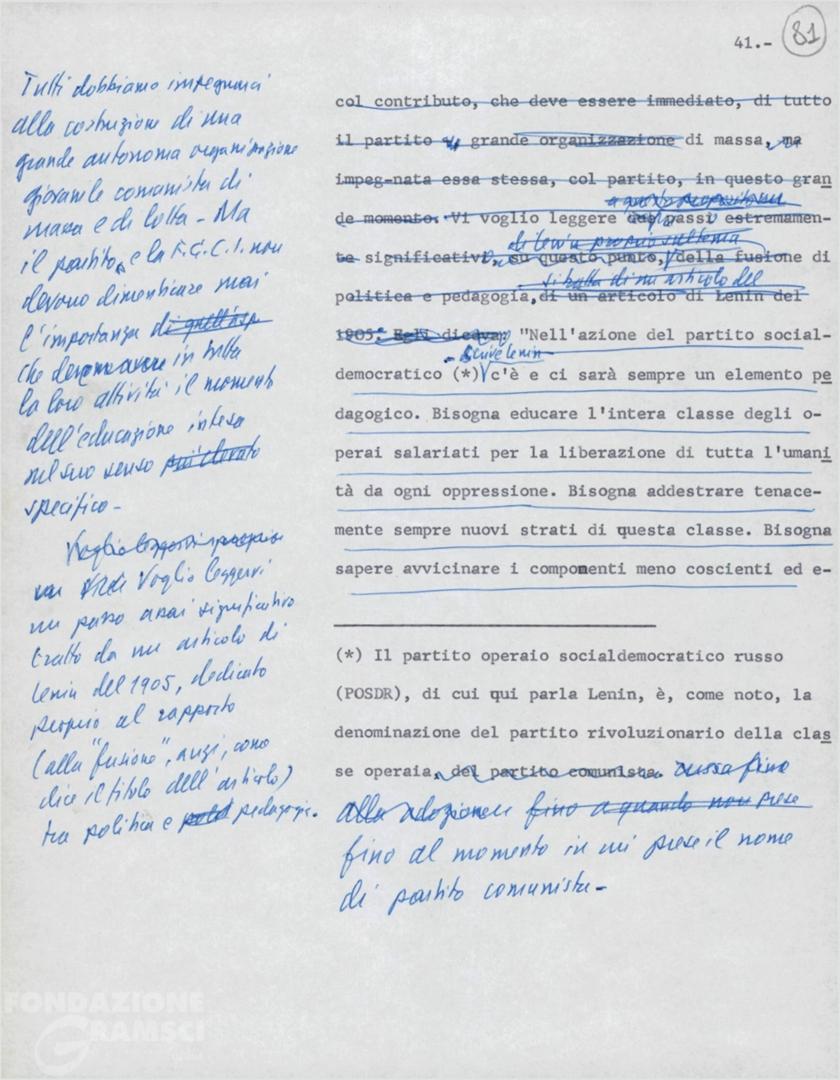 41.- 81
Tutti dobbiamo impegnarci
alla costruzione di una
grande autonoma organizzazione
giovanile comunista di
massa e di lotta - Ma
il partito, e la F.G.C.I. non
devono dimenticare mai
l'importanza di quell'asp
che devono avere in tutta
la loro attività il momento
dell'educazione intesa
nel suo senso più elevato
specifico -
Voglio leggervi proprio
Voglio leggervi
un passo assai significativo
tratto da un articolo di
Lenin del 1905, dedicato
proprio al rapporto
(alla "fusione", anzi, come
dice il titolo dell'articolo)
tra politica e pedagogia.
col contributo, che deve essere immediato, di tutto
il partito grande organizzazione di massa, ma
impeg-nata essa stessa, col partito, in questo gran
a questo proposito un
de momento. Vi voglio leggere passi estremamen-
di Lenin proprio sul tema
te significativi, su questo punto, della fusione di
si tratta di un articolo del
politica e pedagogia, di un articolo di Lenin del
1905. Egli diceva: "Nell'azione del partito social-
- scrive Lenin -
democratico (*) c'è e ci sarà sempre un elemento pe
dagogico. Bisogna educare l'intera classe degli o-
perai salariati per la liberazione di tutta l'umani
tà da ogni oppressione. Bisogna addestrare tenace-
mente sempre nuovi strati di questa classe. Bisogna
sapere avvicinare i componenti meno coscienti ed e-
(*) Il partito operaio socialdemocratico russo
(POSDR), di cui qui parla Lenin, è, come noto, la
denominazione del partito rivoluzionario della clas
se operaia, del partito comunista. russa fino
alla adozione fino a quando non prese
fino al momento in cui prese il nome
di partito comunista -
FONDAZIONE
GRAMSCI